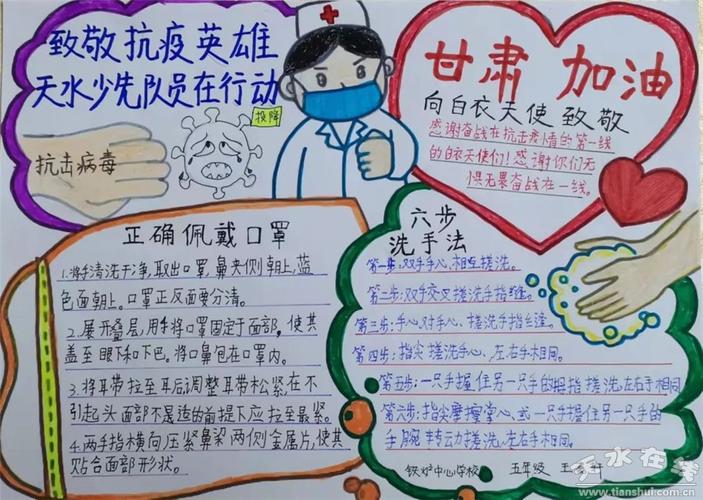 致敬抗疫英雄
天水少先队员在行动
投降
抗击病毒
甘肃 加油
向白衣天使致敬
感谢奋战在抗击疫情的第一线
的白衣天使们!感谢你们无
惧无畏奋战在一线。
正确佩戴口罩
1.将手清洗干净,取出口罩,鼻夹侧朝上,蓝
色面朝上。口罩正反面要分清。
2.展开叠层,用手将口罩固定于面部,使其
盖至眼下和下巴,将口鼻包在口罩内。
3.将耳带拉至耳后,调整耳带松紧,在不
引起头面部不是适的前提下应拉至最紧。
4.两手指横向压紧鼻梁两侧金属片,使其
贴合面部形状。
六步
洗手法
第一步:双手手心,相互搓洗。
第二步:双手交叉搓洗手指缝。
第三步:手心对手心、搓洗手指缝。
第四步:指尖搓洗手心、左右手相同。
第五步:一只手握住另一只手的拇指搓洗,左右手相同
第六步:指尖摩擦掌心,或一只手握住另一只手的
手腕转动搓洗,左右手相同。
铁炉中心学校 五年级 王
天水在线
www.tianshui.com.cn